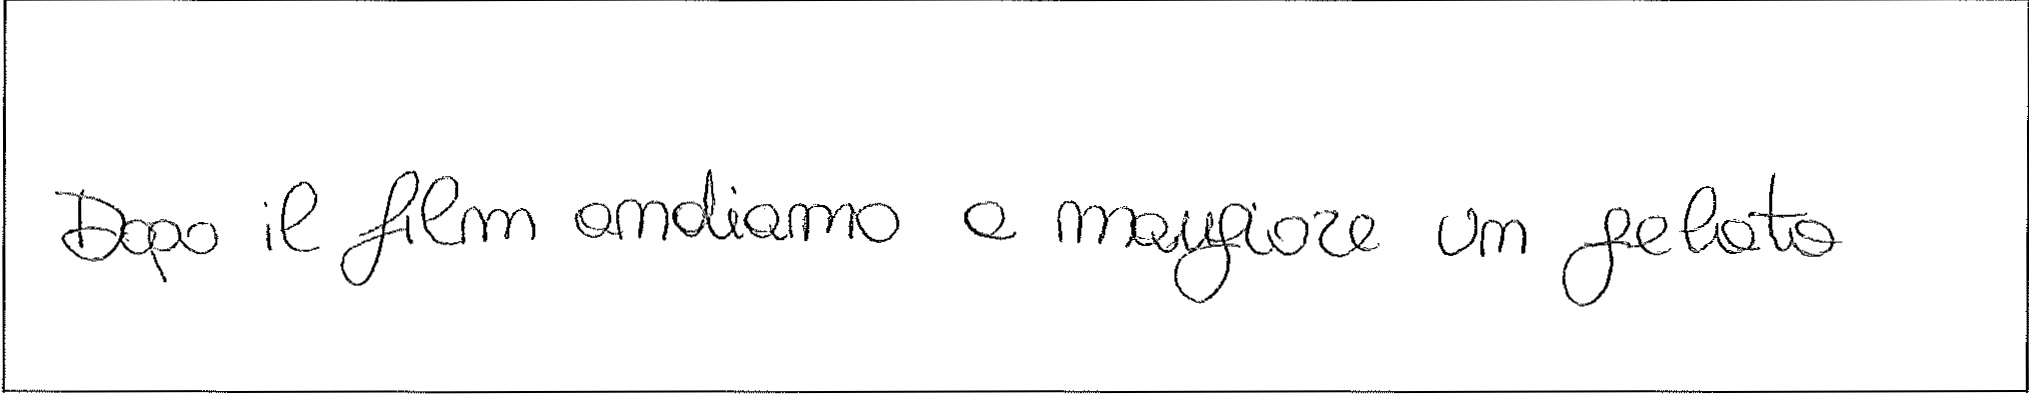 Dopo il film andiamo a mangiare un gelato